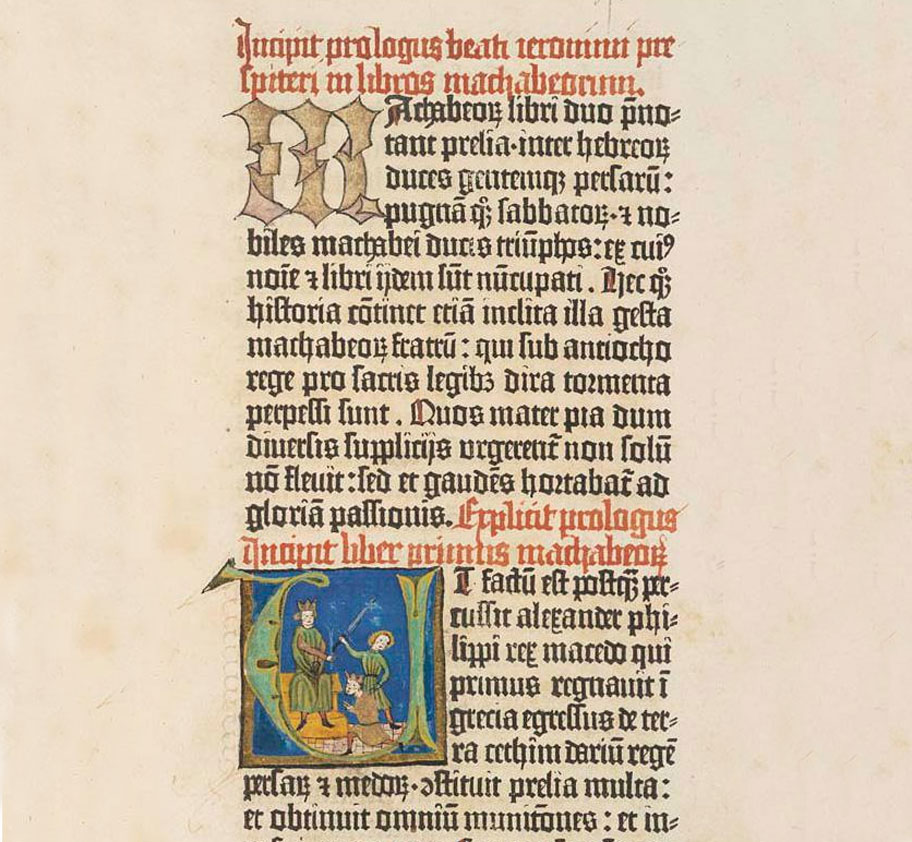 Incipit prologus beati ieronimi pre
spiteri in libros machabeorum.
Machabeoꝝ libri duo p̄no⸗
tant prelia·inter hebreoꝝ
duces gentemqꝫ persarū:
pugnā qꝫ̊ sabbatoꝝ·⁊ no⸗
biles machabei ducis triūphos:ex cuiꝰ
noīe ⁊ libri ijdem sūt nūcupati. Hec qꝫ̊
historia cōtinet etiā inclita illa gesta
machabeoꝝ fratrū: qui sub antiocho
rege pro sacris legibꝫ dira tormenta
perpessi sunt. Quos mater pia dum
diuersis supplicijs vrgerent̄ non solū
nō fleuit:sed et gaudēs hortabat̄ ad
gloriā passionis. Explicit prologus
Incipit liber primus machabeoꝝ
ET factū est postqꝫ̄ per⸗
cussit alexander phi⸗
lippi rex macedo qui
primus regnauit ī
grecia egressus de ter⸗
ra cethim dariū regē
persaꝝ ⁊ medoꝝ·ↄstituit prelia multa:
et obtinuit omniū munitōnes: et in⸗